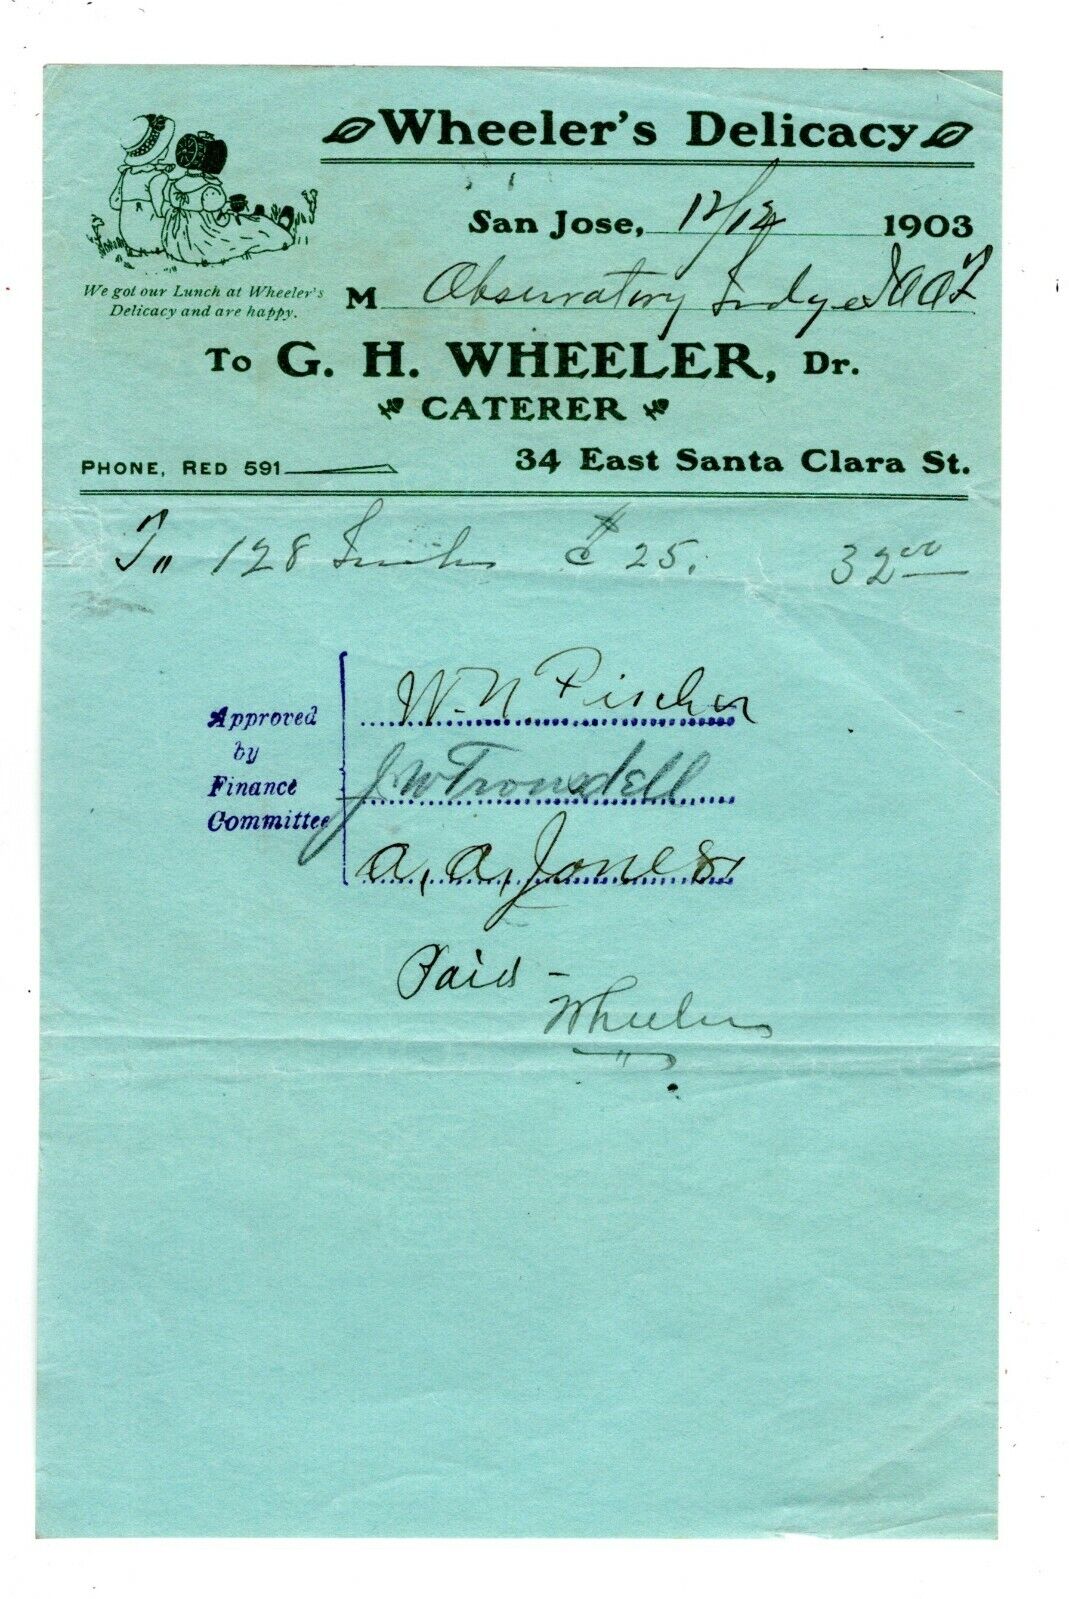 Wheeler's Delicacy
San Jose, 12/12 1903
We got our Lunch at Wheeler's
Delicacy and are happy.
M Observatory Lodge IOOF
To G. H. WHEELER, Dr.
CATERER
PHONE, RED 591
34 East Santa Clara St.
To 128 @ 25. 32.00
Approved
by
Finance
Committee
W. N. Pischer
J W Trousdell
A. A. Jones.
Paid -
Wheeler